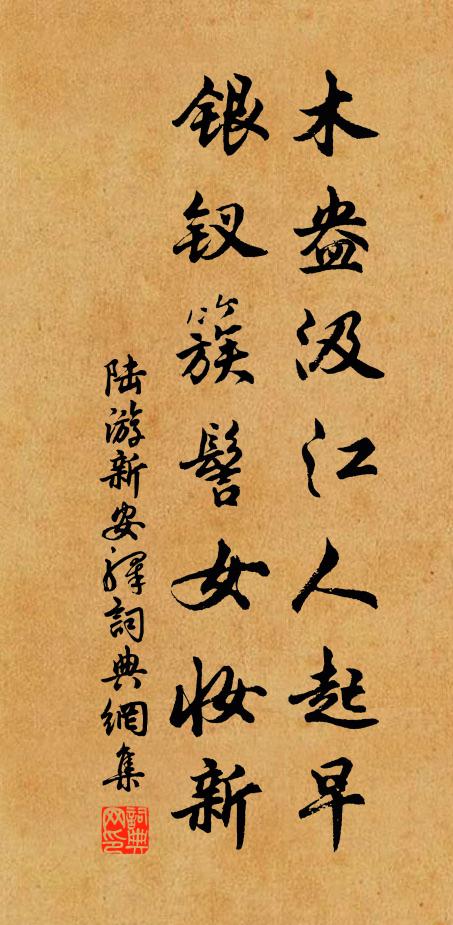 木盎汲江人起早
银钗簇髻女妆新
陆游新安驛詞典網集
詞典网印